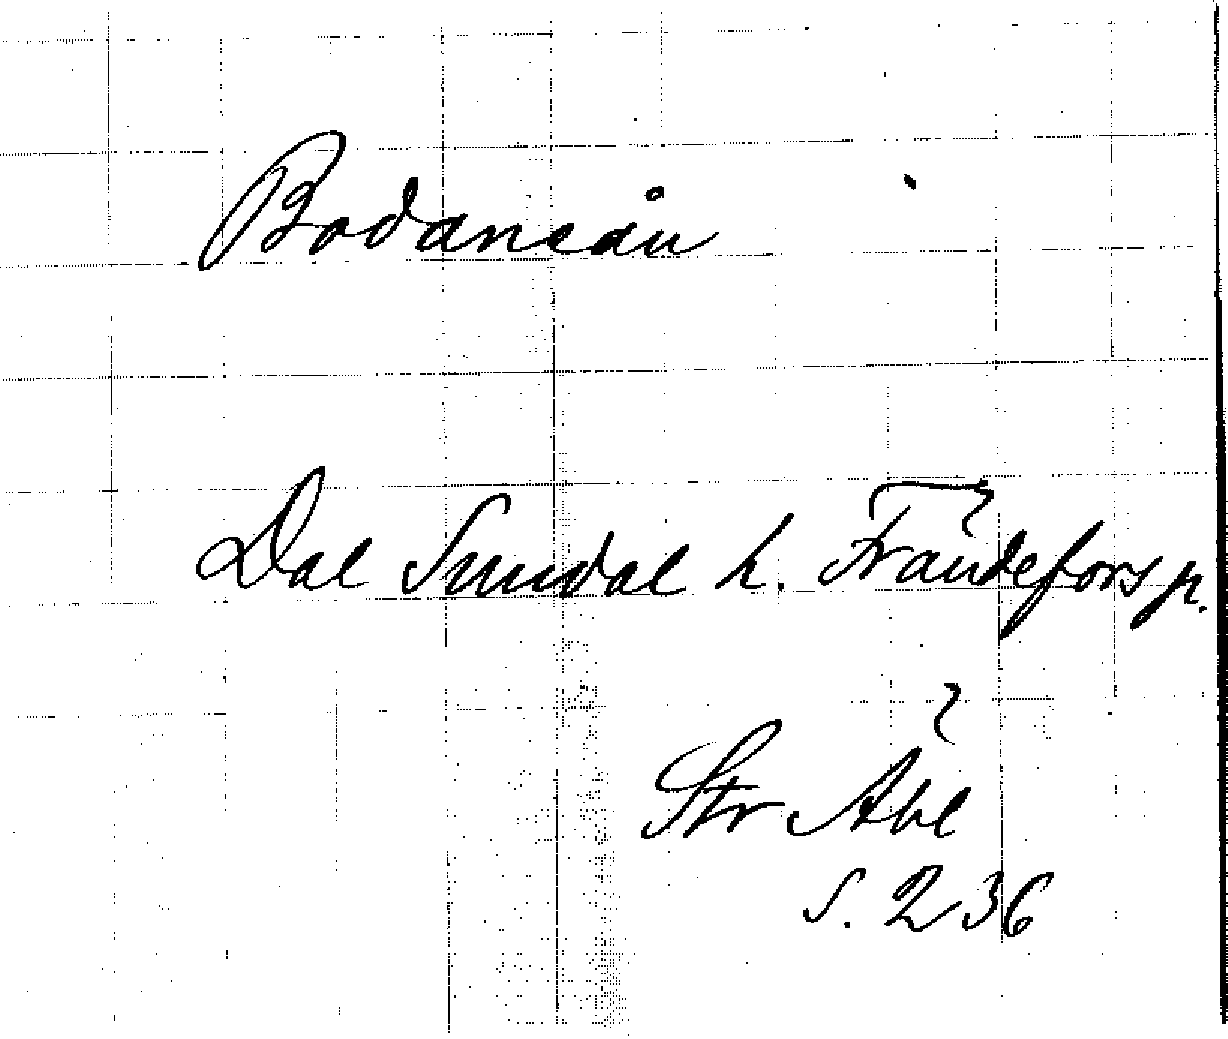 Bodaneån
Dal Sundal h. Frändefors p.
Str Åbl
s. 236